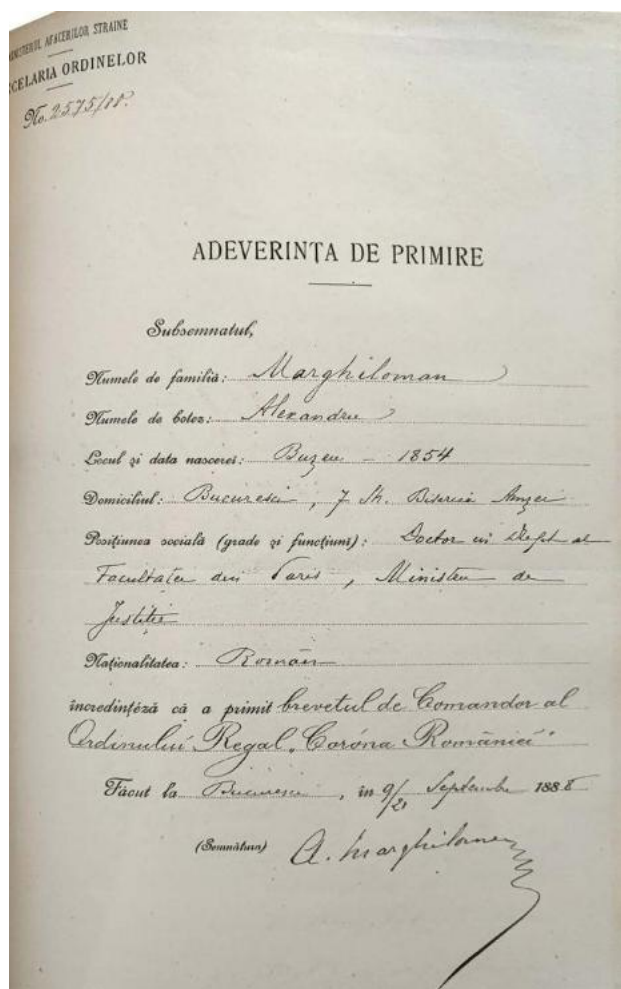 MINISTERUL AFACERILOR STRAINE
CELARIA ORDINELOR
No. 2575/88.
ADEVERINȚA DE PRIMIRE
Subsemnatul,
Numele de familiă: Marghiloman
Numele de botez: Alexandru
Locul și data nascerei: Buzeu - 1854
Domiciliul: Bucuresci, 7 St. Biserica Amzei
Posițiunea socială (grade și funcțiuni): Doctor in Drept al
Facultatei din Paris, Ministru de
Justiție
Naționalitatea: Român
încredințéză că a primit brevetul de Comandor al
Ordinului Regal „Coróna României"
Făcut la Bucuresci, în 9/21 Septembre 1888
(Semnătura) A. Marghiloman